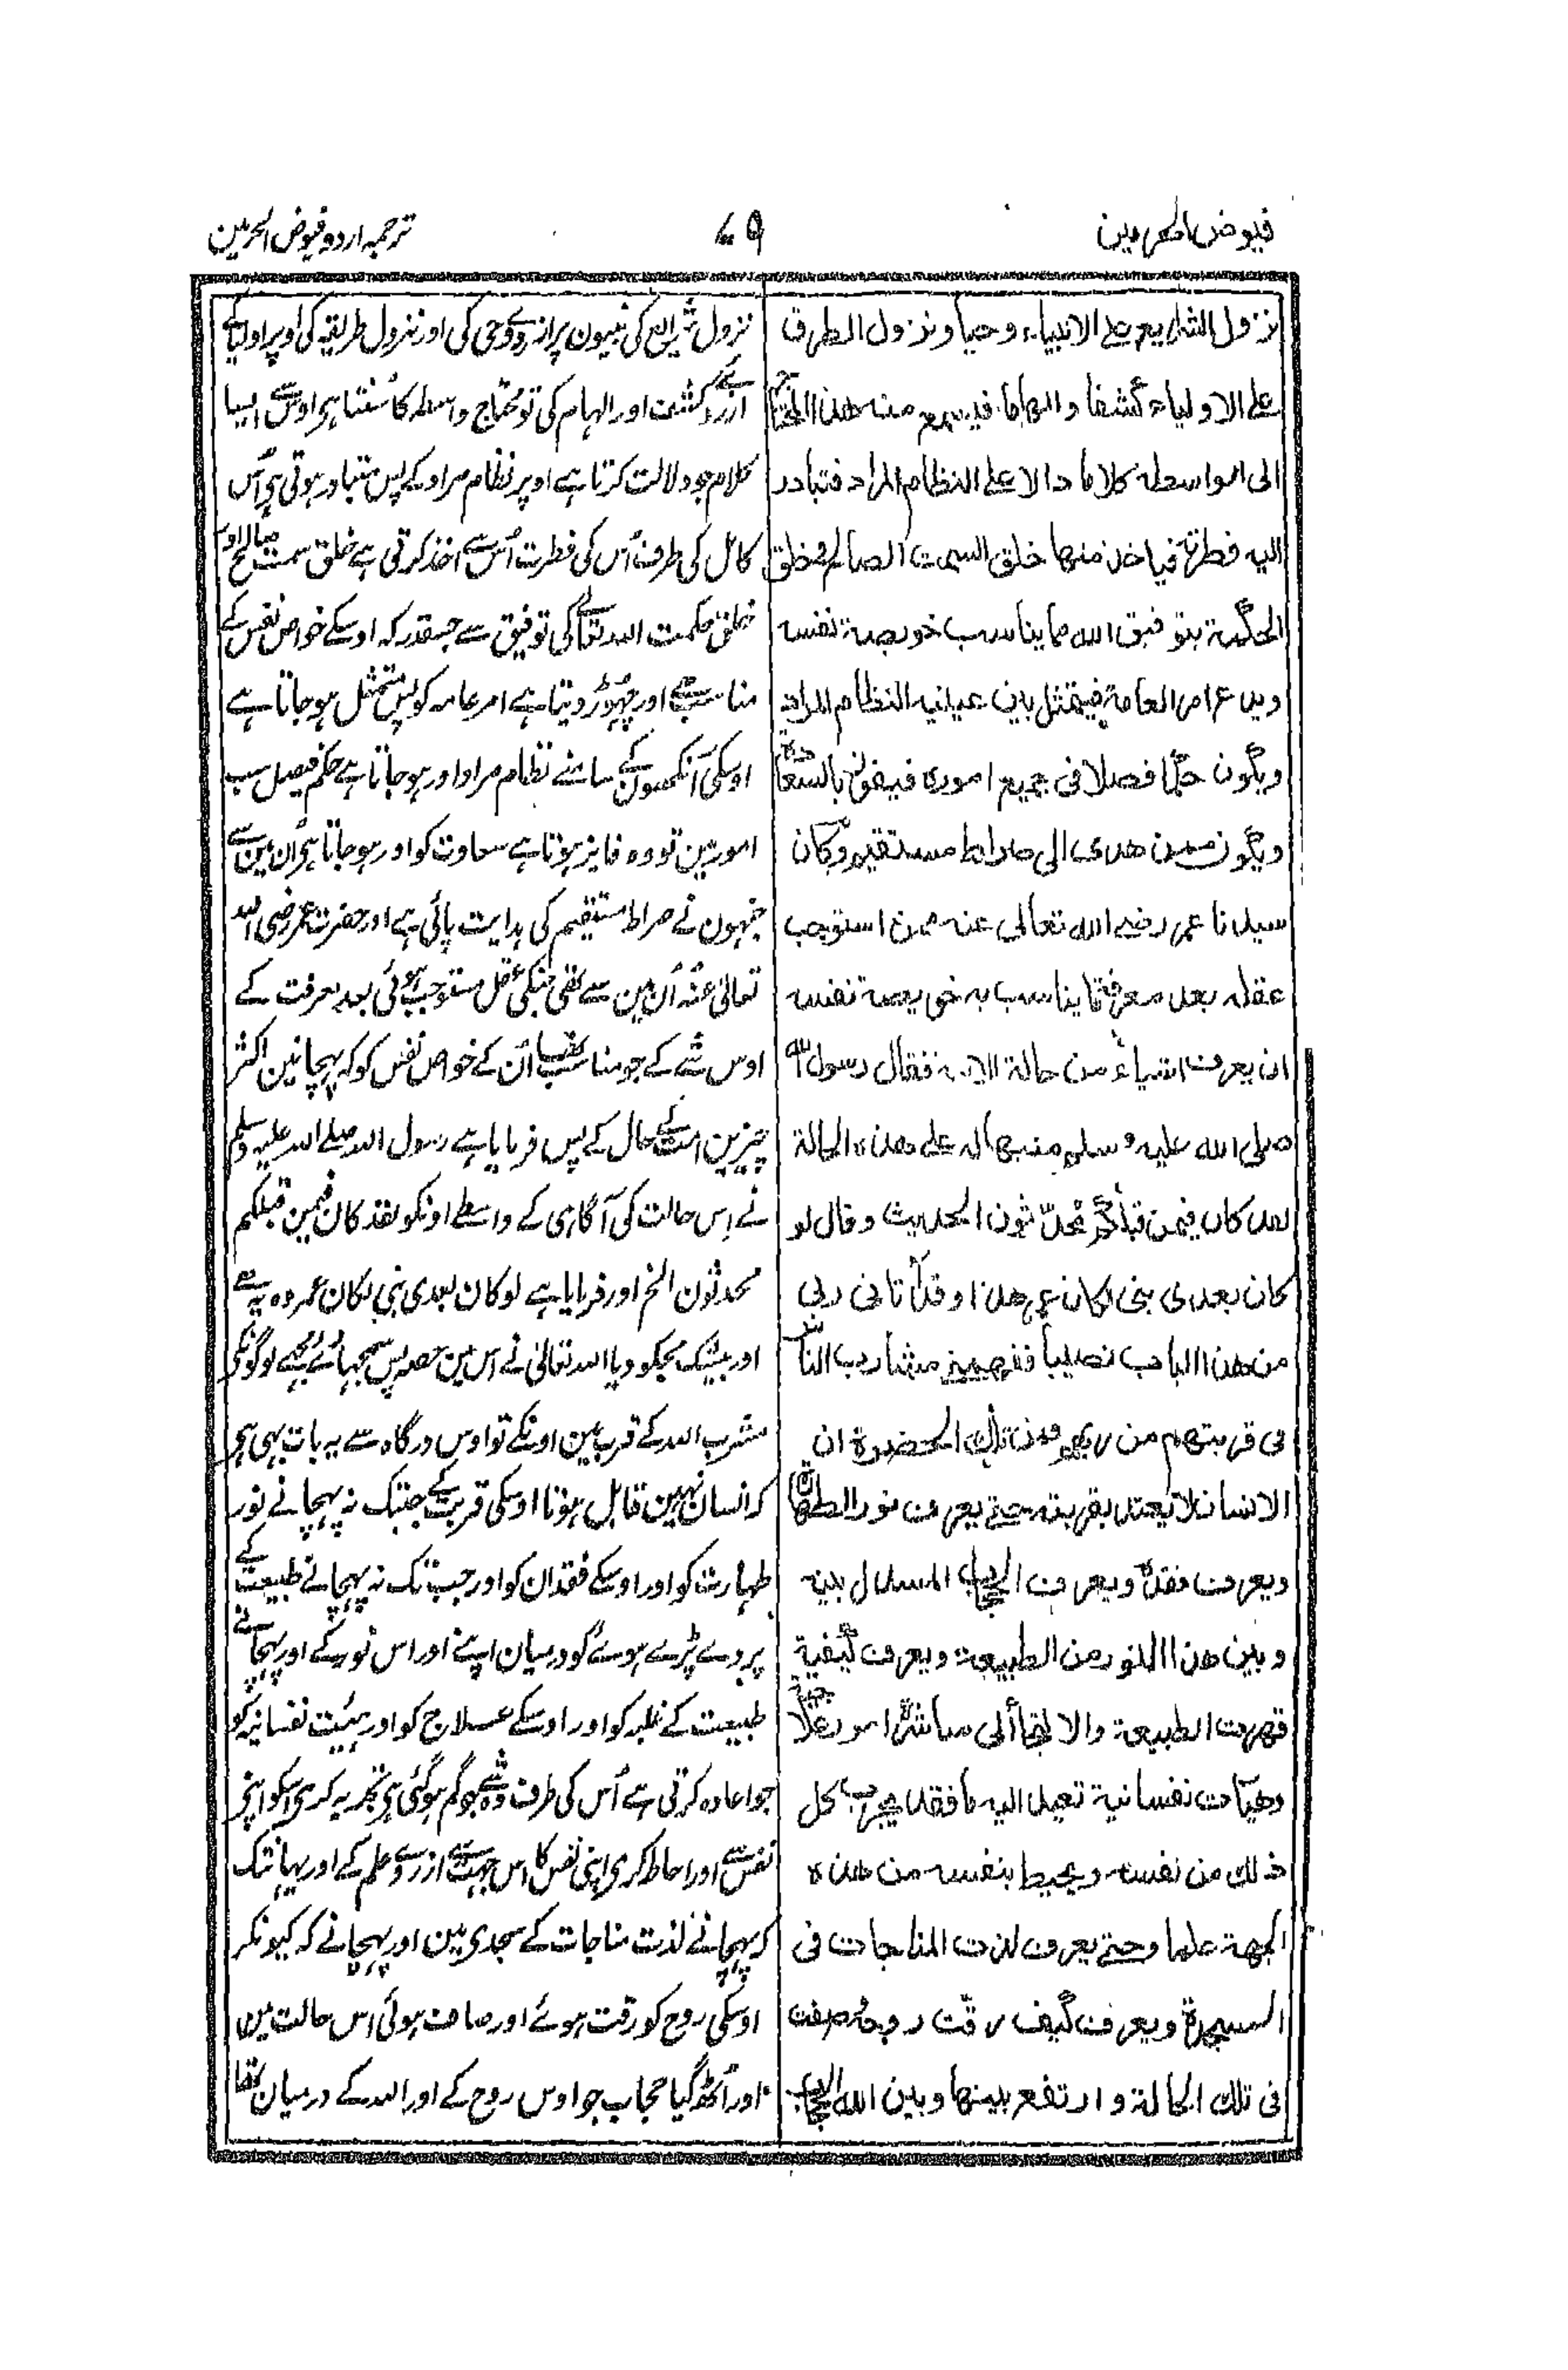 فیوض الحرمین
۷۹
ترجمہ اردو فیوض الحرمین
نزول الشرایع علی الانبیاء وحیا و نزول الطرق
علی الاولیاء کشفا و الهاما فیسمع منه هذا المحتاج
الی الواسطه کلاما دالا علی النظام المراد فتبادر
الیه فطرته فیاخذ منها خلق السمت الصالح و خلق
الحکمة بتوفیق الله مما یناسب خویصة نفسه
ویدع امر العامة فیتمثل بین عینیه النظام المراد
ویکون حکما فصلا فی جمیع اموره فیفوز بالسعادة
ویکون ممن هدی الی صراط مستقیم وکان
سیدنا عمر رضی الله تعالی عنه ممن استوجب
عقله بعد معرفة ما یناسب به خویصة نفسه
ان یعرف اشیاء من حالة الامة فقال رسول الله
صلی الله علیه وسلم منبها له علی هذه الحالة
لقد کان فیمن قبلکم محدّثون الحدیث وقال لو
کان بعدی نبی لکان عمر هذا وقد آتانی ربی
من هذا الباب نصیبا ففهمنی مشارب الناس
فی قربتهم من ربهم ومن تلک الحضرة ان
الانسان لا یعتد بقربته حتی یعرف نور الطهارة
ویعرف فقده ویعرف الحجاب المسدل بینه
وبین هذا النور من الطبیعة ویعرف کیفیة
قهرت الطبیعة والالتجا الی مباشرة امور علاجیة
وهیآت نفسانیة تعید الیه ما فقد یجرب کل
ذلک من نفسه ویحیط بنفسه من هذه
الجهة علما وحتی یعرف لذت المناجات فی
السجدة ویعرف کیف رقت روحه وصفت
فی تلک الحالة وارتفع بینها وبین الله الحجاب
نزول شرایع کی نبیون پر ازروے وحی کی اور نزول طریقہ کی اوپر اولیاکے
ازروئے کشف اور الہام کی تو محتاج واسطہ کا سُنتا ہی اوس سے ایسا
کلام جو دلالت کرتا ہے اوپر نظام مراد کے پس متبادر ہوتی ہی اُس
کامل کی طرف اُس کی فطرت اُس سے اخذ کرتی ہے خلق سمت صالح اور
خلق حکمت اللہ تعالےٰ کی توفیق سے جسقدر کہ اوسکے خواص نفس کے
مناسب ہے اور چھوڑ دیتا ہے امر عامہ کو پس متمثل ہو جاتا ہے
اوسکی آنکھون کے سامنے نظام مراد اور ہو جاتا ہے حکم فیصل سب
امور مین تو وہ فایز ہوتا ہے سعادت کو اور ہو جاتا ہی اُن مین سے
جنہون نے صراط مستقیم کی ہدایت پائی ہے اور حضرت عمر رضی اللہ
تعالیٰ عنہُ اُن مین سے تھی جنکی عقل مستوجب ہوئی بعد معرفت کے
اوس شے کے جو مناسب تھا اُن کے خواص نفس کو کہ پہچانین اکثر
چیزین امت کے حال کے پس فرمایا ہے رسول اللہ صلے اللہ علیہ وسلم
نے اِس حالت کی آگاہی کے واسطے اونکو لقد کان فیمن قبلکم
محدثون الخ اور فرمایا ہے لو کان بعدی نبی لکان عمر وہ یہ ہے
اور بیشک مجکو دیا اللہ تعالیٰ نے اس مین حصہ پس سمجھائے مجھے لوگونکی
مشرب اللہ کے قرب مین اونکے تو اوس درگاہ سے یہ بات بھی ہی
کہ انسان نہین قابل ہوتا اوسکی قربت کے جبتک نہ پہچانے نور
طہارت کو اور اوسکے فقدان کو اور جب تک نہ پہچانے طبیعت کے
پردے پڑے ہوئے کو درمیان اپنے اور اس نور کے اور پہچانے
طبیعت کے غلبہ کو اور اوسکے علاج کو اور ہیئت نفسانیہ کو
جو اعادہ کرتی ہے اُس کی طرف وہ شے جو گم ہو گئی ہی تجربہ کری اسکو اپنی
نفس سے اور احاطہ کری اپنی نفس کا اس جہت سے ازروے علم کے اور یہانتک
کہ پہچانے لذت مناجات کے سجدی مین اور پہچانے کہ کیونکر
اوسکی روح کو رقت ہوئے اور صاف ہوئی اس حالت مین
اور اُٹھ گیا حجاب جو اوس روح کے اور اللہ کے درمیان تھا